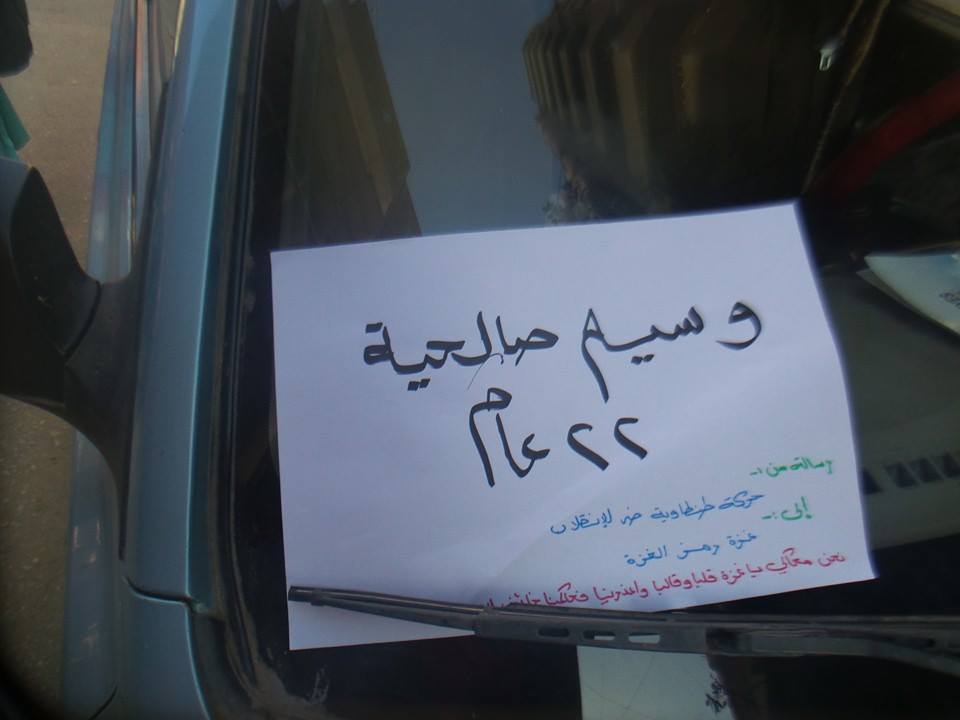 وسيم صالحية
٢٢ عام
رسالة من :-
حركة طنطاوية ضد الإنقلاب
إلى :-
غزة رمز العزة
نحن معاكي يا غزة قلبا وقالبا واعذرينا فحكامنا